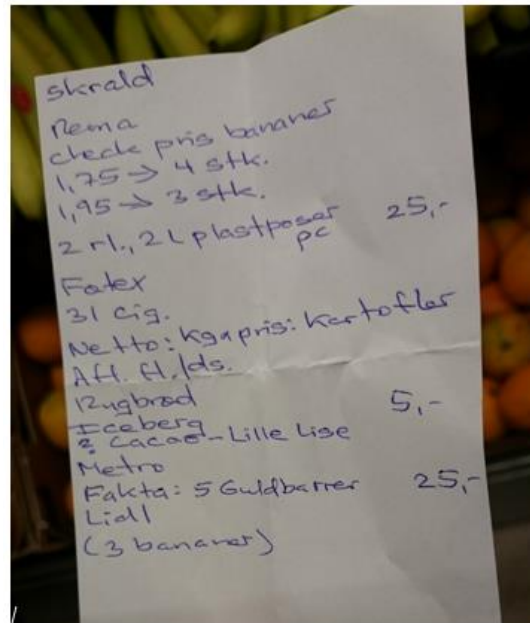 skrald
Rema
check pris bananer
1,75 → 4 stk.
1,95 → 3 stk.
2 rl., 2 L plastposer 25,-
pc
Føtex
31 cig.
Netto: Kgapris: Kartofler
Aft. fl./ds.
Rugbrød
Iceberg 5,-
? Cacao - Lille Lise
Metro
Fakta: 5 Guldbarrer 25,-
Lidl
(3 bananer)